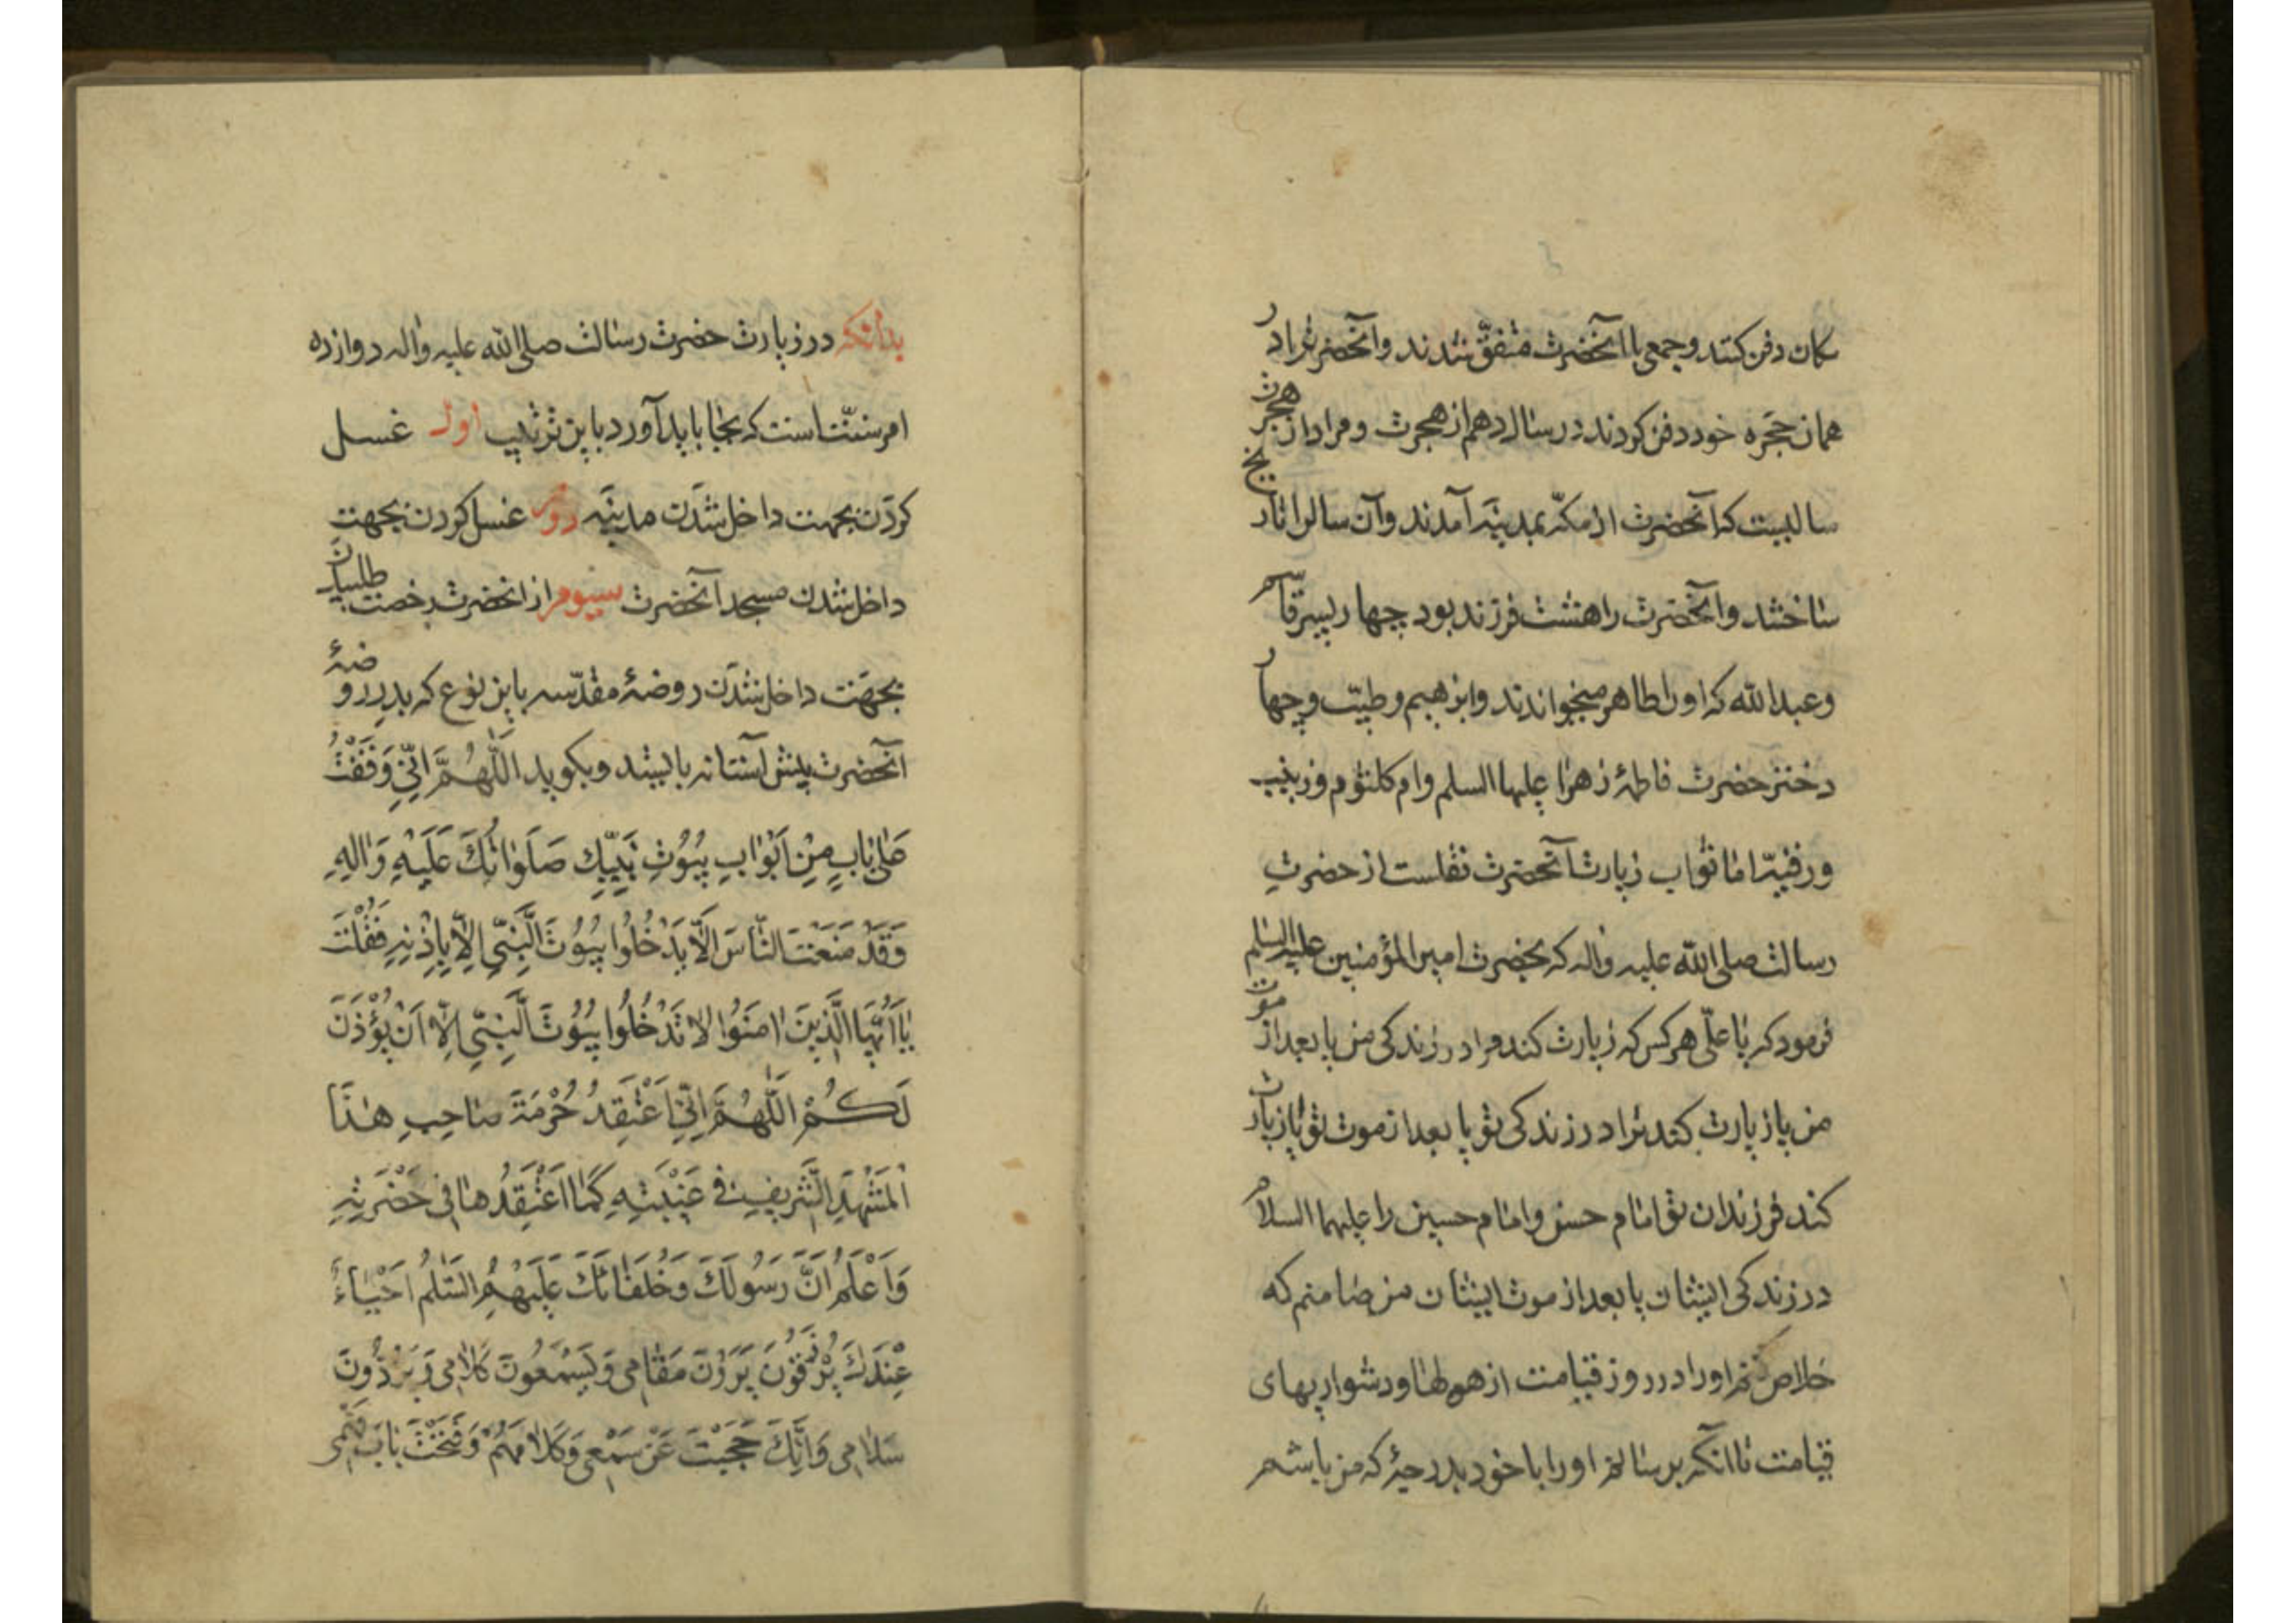 مکان دفن کنند و جمعی با آنحضرت متفق شدند و آنحضرترا در
همان حجره خود دفن کردند در سال دهم از هجرت و مراد از هجرت
سالیست که آنحضرت از مکّه بمدینه آمدند و آن سالرا تاریخ
ساختند و آنحضرت را هشت فرزند بود چهار پسر قاسم
و عبدالله که او را طاهر میخواندند و ابرهیم و طیّب و چهار
دختر حضرت فاطمهٔ زهرا علیها السلم و ام کلثوم و زینب
و رقیّه امّا ثواب زیارت آنحضرت نقلست از حضرتِ
رسالت صلی الله علیه واله که بحضرت امیر المؤمنین علیه السلم
فرمود که یا علی هر کس که زیارت کند مرا در زندکی من یا بعد از موت
من یا زیارت کند ترا در زندکی تو یا بعد از موت تو یا زیارت
کند فرزندان تو امام حسن و امام حسین را علیهما السلام
در زندکی ایشان یا بعد از موت ایشان من ضامنم که
خلاص کنم او را در روز قیامت از هولها و دشواریهای
قیامت تا آنکه برسانم او را با خود بدرجهٔ که من باشم
بدانکه در زیارت حضرت رسالت صلی الله علیه واله دوازده
امر سنّت است که بجا باید آورد باین ترتیب اول غسل
کردن بجهت داخل شدن مدینه دوم غسل کردن بجهت
داخل شدن مسجد آنحضرت سیوم از انحضرت رخصت طلبیدن
بجهت داخل شدن روضهٔ مقدّسه باین نوع که بدر روضهٔ
آنحضرت پیش آستانه بایستد و بکوید اَللّٰهُمَّ اِنّی وَقَفْتُ
عَلیٰ بٰابٍ مِنْ اَبْوٰابِ بُیُوتِ نَبِیِّكَ صَلَوٰاتُكَ عَلَیْهِ وَاٰلِهِ
وَقَدْ مَنَعْتَ النّٰاسَ اَلّٰا یَدْخُلُوا بُیُوتَ النَّبِیِّ اِلّٰا بِاِذْنِهِ فَقُلْتَ
یٰا اَیُّهَا الَّذینَ اٰمَنُوا لٰا تَدْخُلُوا بُیُوتَ النَّبِیِّ اِلّٰا اَنْ یُؤْذَنَ
لَكُمْ اَللّٰهُمَّ اِنّی اَعْتَقِدُ حُرْمَةَ صٰاحِبِ هٰذَا
الْمَشْهَدِ الشَّریفِ فی غَیْبَتِهِ كَمٰا اَعْتَقِدُهٰا فی حَضْرَتِهِ
وَاَعْلَمُ اَنَّ رَسُولَكَ وَخُلَفٰائَكَ عَلَیْهِمُ السَّلٰمُ اَحْیٰاءٌ
عِنْدَكَ یُرْزَقُونَ یَرَوْنَ مَقٰامی وَیَسْمَعُونَ كَلٰامی وَیَرُدُّونَ
سَلٰامی وَاَنَّكَ حَجَبْتَ عَنْ سَمْعی كَلٰامَهُمْ وَفَتَحْتَ بٰابَ فَهْمی